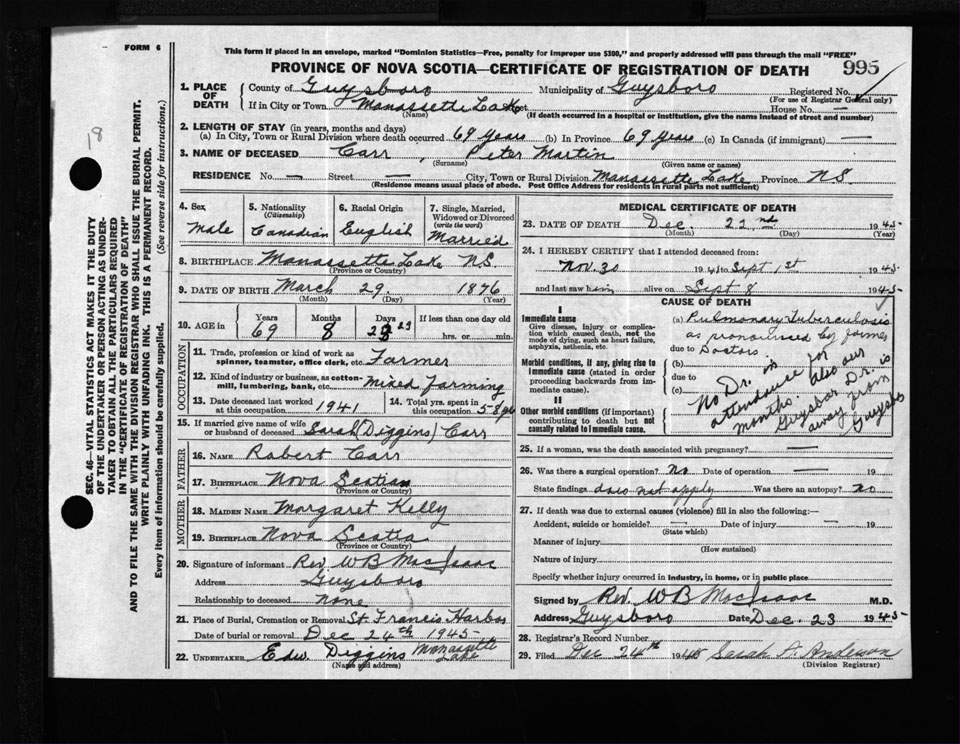 FORM 6
This form if placed in an envelope, marked "Dominion Statistics—Free, penalty for improper use $300," and properly addressed will pass through the mail "FREE"
PROVINCE OF NOVA SCOTIA—CERTIFICATE OF REGISTRATION OF DEATH
995
19
SEC. 46—VITAL STATISTICS ACT MAKES IT THE DUTY
OF THE UNDERTAKER OR PERSON ACTING AS UNDER-
TAKER TO OBTAIN ALL THE PARTICULARS REQUIRED
IN THE "CERTIFICATE OF REGISTRATION OF DEATH"
AND TO FILE THE SAME WITH THE DIVISION REGISTRAR WHO SHALL ISSUE THE BURIAL PERMIT.
WRITE PLAINLY WITH UNFADING INK. THIS IS A PERMANENT RECORD.
Every item of information should be carefully supplied. (See reverse side for instructions.)
1. PLACE OF DEATH
County of Guysboro Municipality of Guysboro Registered No.
(For use of Registrar General only)
If in City or Town Manassette Lake House No. —
(Name) (If death occurred in a hospital or institution, give its name instead of street and number)
2. LENGTH OF STAY (in years, months and days)
(a) In City, Town or Rural Division where death occurred 69 Years (b) In Province 69 Years (c) In Canada (if immigrant) —
3. NAME OF DECEASED Carr, Peter Martin
(Surname) (Given name or names)
RESIDENCE No. — Street — City, Town or Rural Division Manassette Lake Province N.S.
(Residence means usual place of abode. Post Office Address for residents in rural parts not sufficient)
4. Sex Male
5. Nationality (Citizenship) Canadian
6. Racial Origin English
7. Single, Married, Widowed or Divorced (write the word) Married
8. BIRTHPLACE Manassette Lake N.S.
(Province or Country)
9. DATE OF BIRTH March 29 1876
(Month) (Day) (Year)
10. AGE in Years 69 Months 8 Days 23 If less than one day old hrs. or min.
OCCUPATION
11. Trade, profession or kind of work as spinner, teamster, office clerk, etc. Farmer
12. Kind of industry or business, as cotton-mill, lumbering, bank, etc. Mixed Farming
13. Date deceased last worked at this occupation 1941
14. Total yrs. spent in this occupation 58 yrs
15. If married give name of wife or husband of deceased Sarah (Diggins) Carr
FATHER
16. NAME Robert Carr
17. BIRTHPLACE Nova Scotian
(Province or Country)
MOTHER
18. MAIDEN NAME Margaret Kelly
19. BIRTHPLACE Nova Scotia
(Province or Country)
20. Signature of informant Rev W B MacIsaac
Address Guysboro
Relationship to deceased none
21. Place of Burial, Cremation or Removal St. Francis Harbor
Date of burial or removal Dec 24th 1945
22. UNDERTAKER Edw. Diggins Manassette Lake
(Name and address)
MEDICAL CERTIFICATE OF DEATH
23. DATE OF DEATH Dec 22nd 1945
(Month) (Day) (Year)
24. I HEREBY CERTIFY that I attended deceased from:
Nov. 30 1941 to Sept 1st 1945
and last saw him alive on Sept 8 1945
CAUSE OF DEATH
Immediate cause
Give disease, injury or complication which caused death, not the mode of dying, such as heart failure, asphyxia, asthenia, etc.
(a) Pulmonary Tuberculosis
as pronounced by former
due to Doctors
Morbid conditions, if any, giving rise to immediate cause (stated in order proceeding backwards from immediate cause).
(b)
due to
(c)
No Dr. in attendance for months. Also our Guysboro Dr. is away from Guysboro
II
Other morbid conditions (if important) contributing to death but not causally related to immediate cause.
25. If a woman, was the death associated with pregnancy? —
26. Was there a surgical operation? No Date of operation — 19
State findings does not apply Was there an autopsy? No
27. If death was due to external causes (violence) fill in also the following:—
Accident, suicide or homicide? — Date of injury — 19
(State which)
Manner of injury
(How sustained)
Nature of injury
Specify whether injury occurred in industry, in home, or in public place
Signed by Rev. W B MacIsaac M.D.
Address Guysboro Date Dec. 23 1945
28. Registrar's Record Number
29. Filed Dec 24th 1945 Sarah A. Anderson
(Division Registrar)